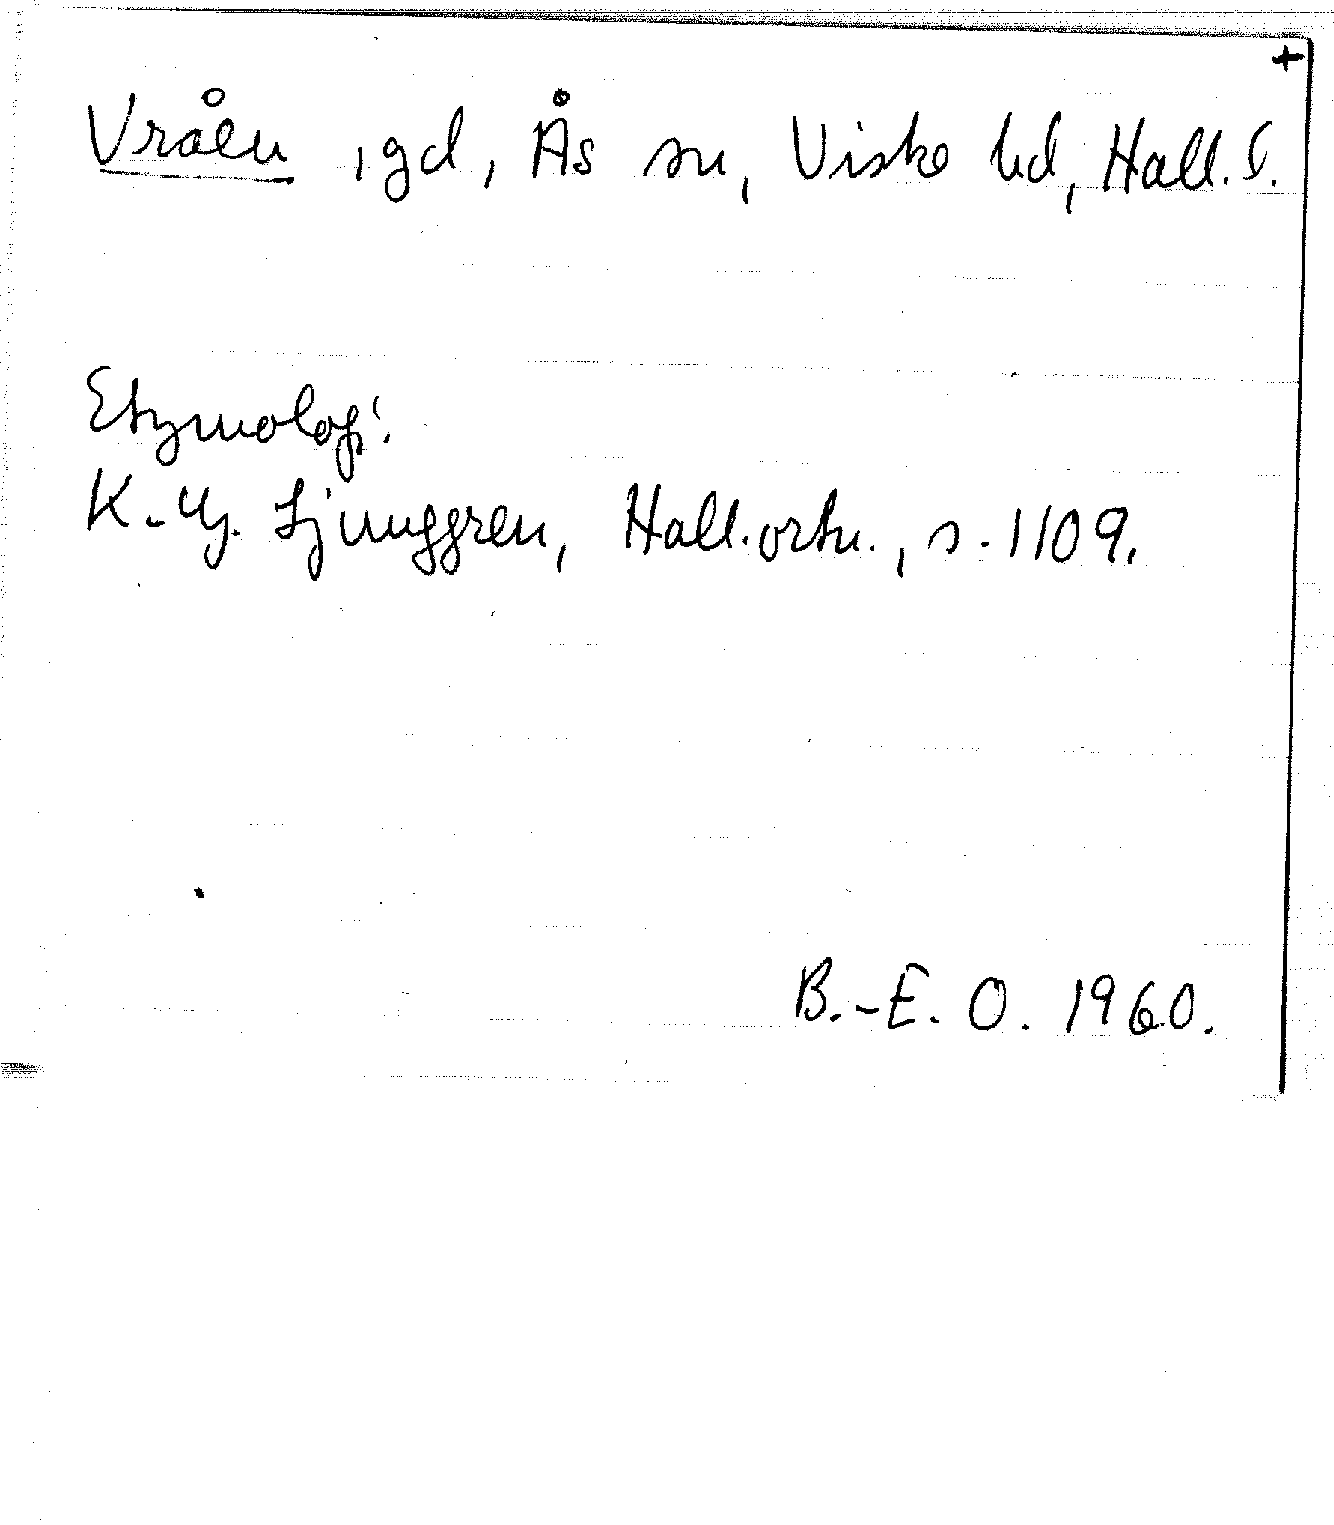 +
Vråen , gd, Ås sn, Viske hd, Hall. l.
Etymologi:
K.-G. Ljunggren, Hall. ortn., s. 1109.
B.-E. O. 1960.